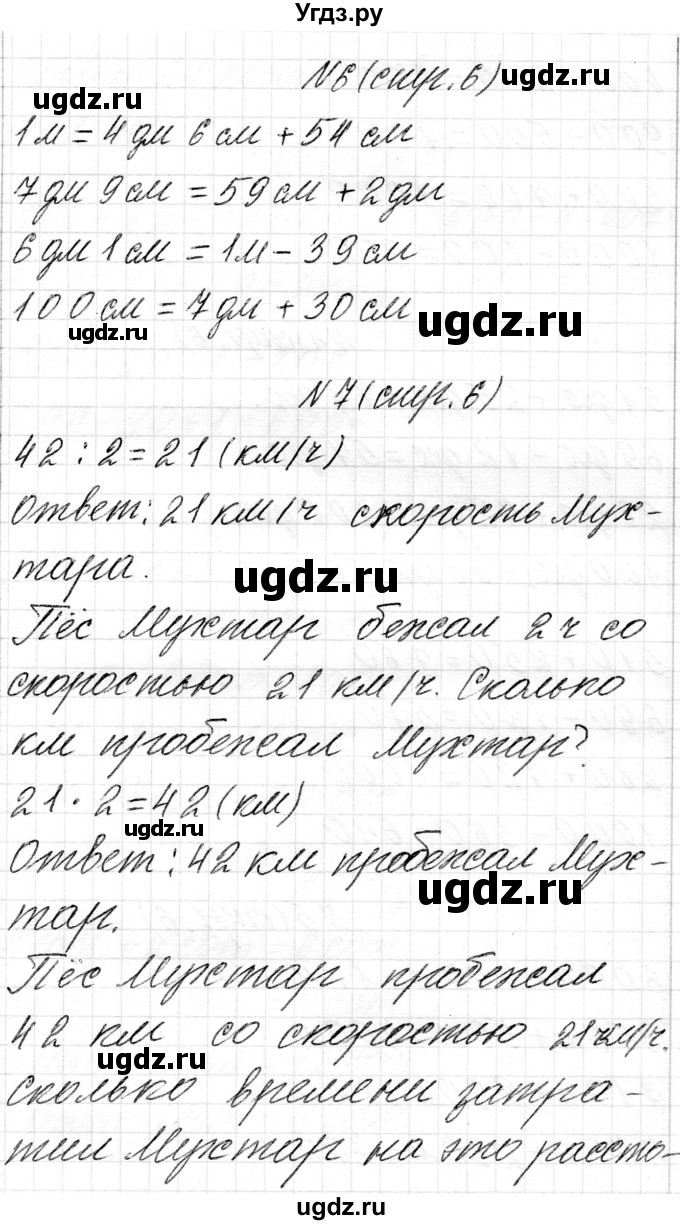 Угдз.ру
N6 (стр. 6) ugdz.ru
ugdz.ru
1м = 4 дм 6 см + 54 см
7 дм 9 см = 59 см + 2 дм
6 дм 1 см = 1м - 39 см
100 см = 7 дм + 30 см
ugdz.ru ugdz.ru
N7 (стр. 6)
42 : 2 = 21 (км/ч)
Ответ: 21 км/ч скорость Мух-
тара.
ugdz.ru
Пёс Мухтар бежал 2ч со
скоростью 21 км/ч. Сколько
км пробежал Мухтар?
21 · 2 = 42 (км)
ugdz.ru
Ответ: 42 км пробежал Мух-
тар.
ugdz.ru
Пёс Мухтар пробежал
42 км со скоростью 21 км/ч.
ugdz.ru
Сколько времени затра-
тил Мухтар на это рассто-
ugdz.ru